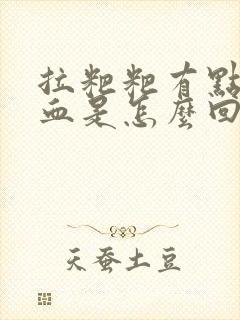 拉粑粑有點
血是怎麼回
天蚕土豆